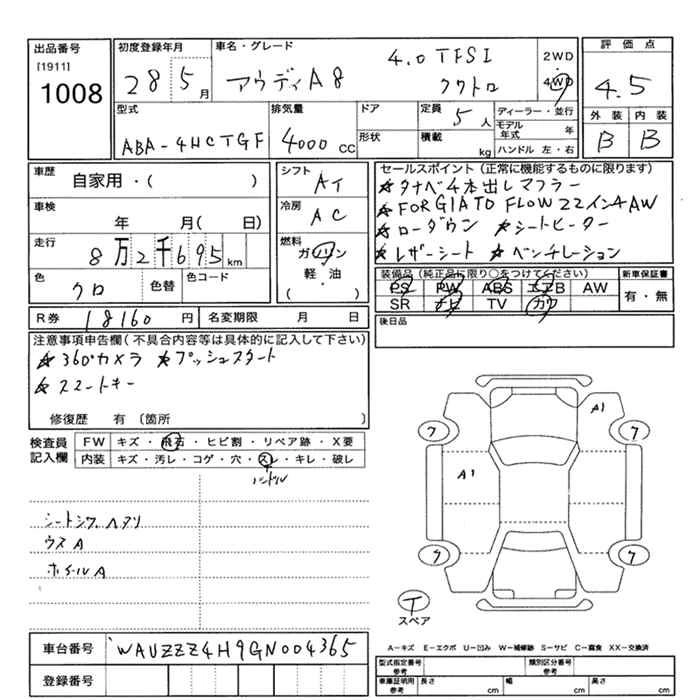 出品番号
[1911]
1008
初度登録年月
28 5月
車名・グレード
アウディA8 4.0 TFSI クワトロ
2WD
4WD
評価点
4.5
外装 内装
B B
型式
ABA-4HCTGF
排気量
4000cc
ドア
形状
定員
5人
積載
kg
ディーラー・並行
モデル年式 年
ハンドル 左・右
車歴
自家用・( )
車検
年 月( 日)
走行
8万2千695km
色
クロ
色替
色コード
シフト
AT
冷房
AC
燃料
ガソリン
軽・油
( ・ )
セールスポイント(正常に機能するものに限ります)
★タナベ4本出しマフラー
★FORGIATO FLOW 22インチAW
★ローダウン ★シートヒーター
★レザーシート ★ベンチレーション
装備品(純正品に限り○をつけてください)
PS PW ABS エアB AW
SR ナビ TV カワ
新車保証書
有・無
後日品
R券 18160円
名変期限 月 日
注意事項申告欄(不具合内容等は具体的に記入して下さい)
★360°カメラ ★プッシュスタート
★スマートキー
修復歴 有〔箇所 〕
検査員記入欄
FW キズ・飛石・ヒビ割・リペア跡・X要
内装 キズ・汚レ・コゲ・穴・スレ・キレ・破レ
ハンドル
シートシワ、ヘタリ
ウスA
ホイールA
A1
ワ ワ
A1
ワ ワ
T
スペア
A－キズ E－エクボ U－凹み W－補修跡 S－サビ C－腐食 XX－交換済
車台番号 WAUZZZ4H9GN004365
登録番号
型式指定番号 参考
類別区分番号 参考
車庫証明用 参考
長さ cm 幅 cm 高さ cm